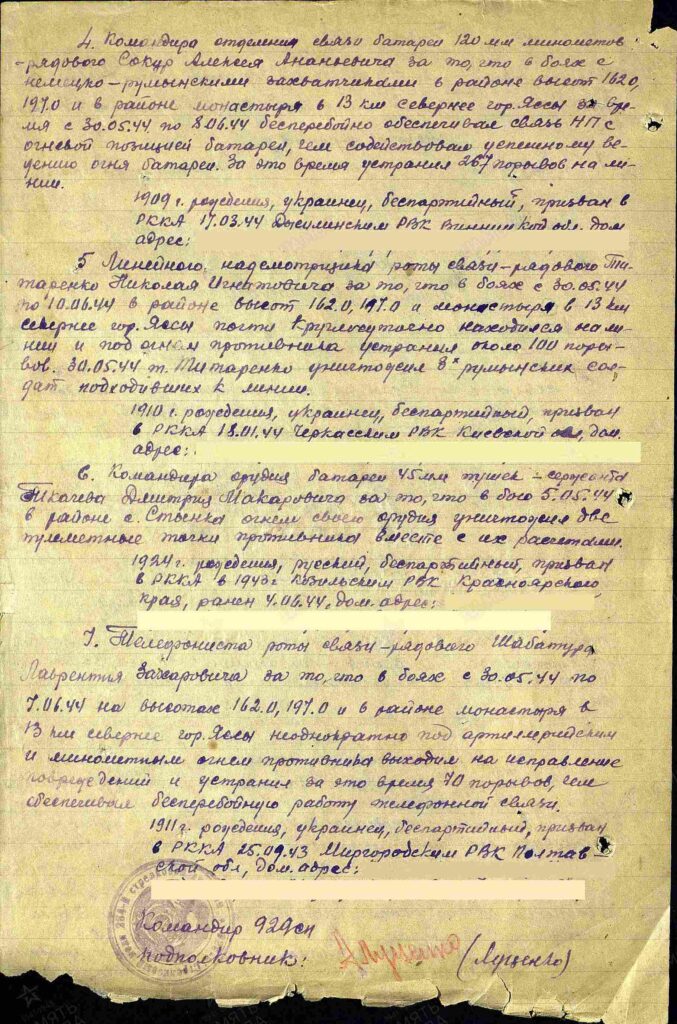 4. Командира отделения связи батареи 120 мм минометов
- рядового Сокур Алексея Ананьевича за то, что в боях с
немецко-румынскими захватчиками в районе высот 162.0,
197.0 и в районе монастыря в 13 км севернее гор. Яссы за вре-
мя с 30.05.44 по 8.06.44 бесперебойно обеспечивал связь НП с
огневой позицией батареи, чем содействовал успешному ве-
дению огня батареи. За это время устранил 267 порывов на ли-
нии.
1909 г. рождения, украинец, беспартийный, призван в
РККА 17.03.44 РВК Винницкой обл. дом
адрес:
5 Линейного надсмотрщика роты связи - рядового Ти-
таренко Николая Игнатовича за то, что в боях с 30.05.44
по 10.06.44 в районе высот 162.0, 197.0 и монастыря в 13 км
севернее гор. Яссы почти круглосуточно находился на ли-
нии и под огнем противника устранил около 100 поры-
вов. 30.05.44 т. Титаренко уничтожил 3х румынских сол-
дат подходивших к линии.
1910 г. рождения, украинец, беспартийный, призван
в РККА 18.01.44 Черкасским РВК Киевской обл, дом.
адрес:
6. Командира орудия батареи 45 мм пушек - сержанта
Ткачева Дмитрия Макаровича за то, что в бою 5.05.44
в районе с. Стынка огнем своего орудия уничтожил две
пулеметные точки противника вместе с их расчетами.
1924 г. рождения, русский, беспартийный, призван
в РККА в 1943 г РВК Красноярского
края, ранен 4.06.44, дом. адрес:
7. Телефониста роты связи - рядового Шабатура
Лаврентия Захаровича за то, что в боях с 30.05.44 по
7.06.44 на высотах 162.0, 197.0 и в районе монастыря в
13 км севернее гор. Яссы неоднократно под артиллерийским
и минометным огнем противника выходил на исправление
повреждений и устранил за это время 70 порывов, чем
обеспечивал бесперебойную работу телефонной связи.
1911 г. рождения, украинец, беспартийный, призван
в РККА 25.09.43 Миргородским РВК Полтав-
ской обл, дом. адрес:
Командир 929 сп
подполковник:
Луценко
(Луценко)